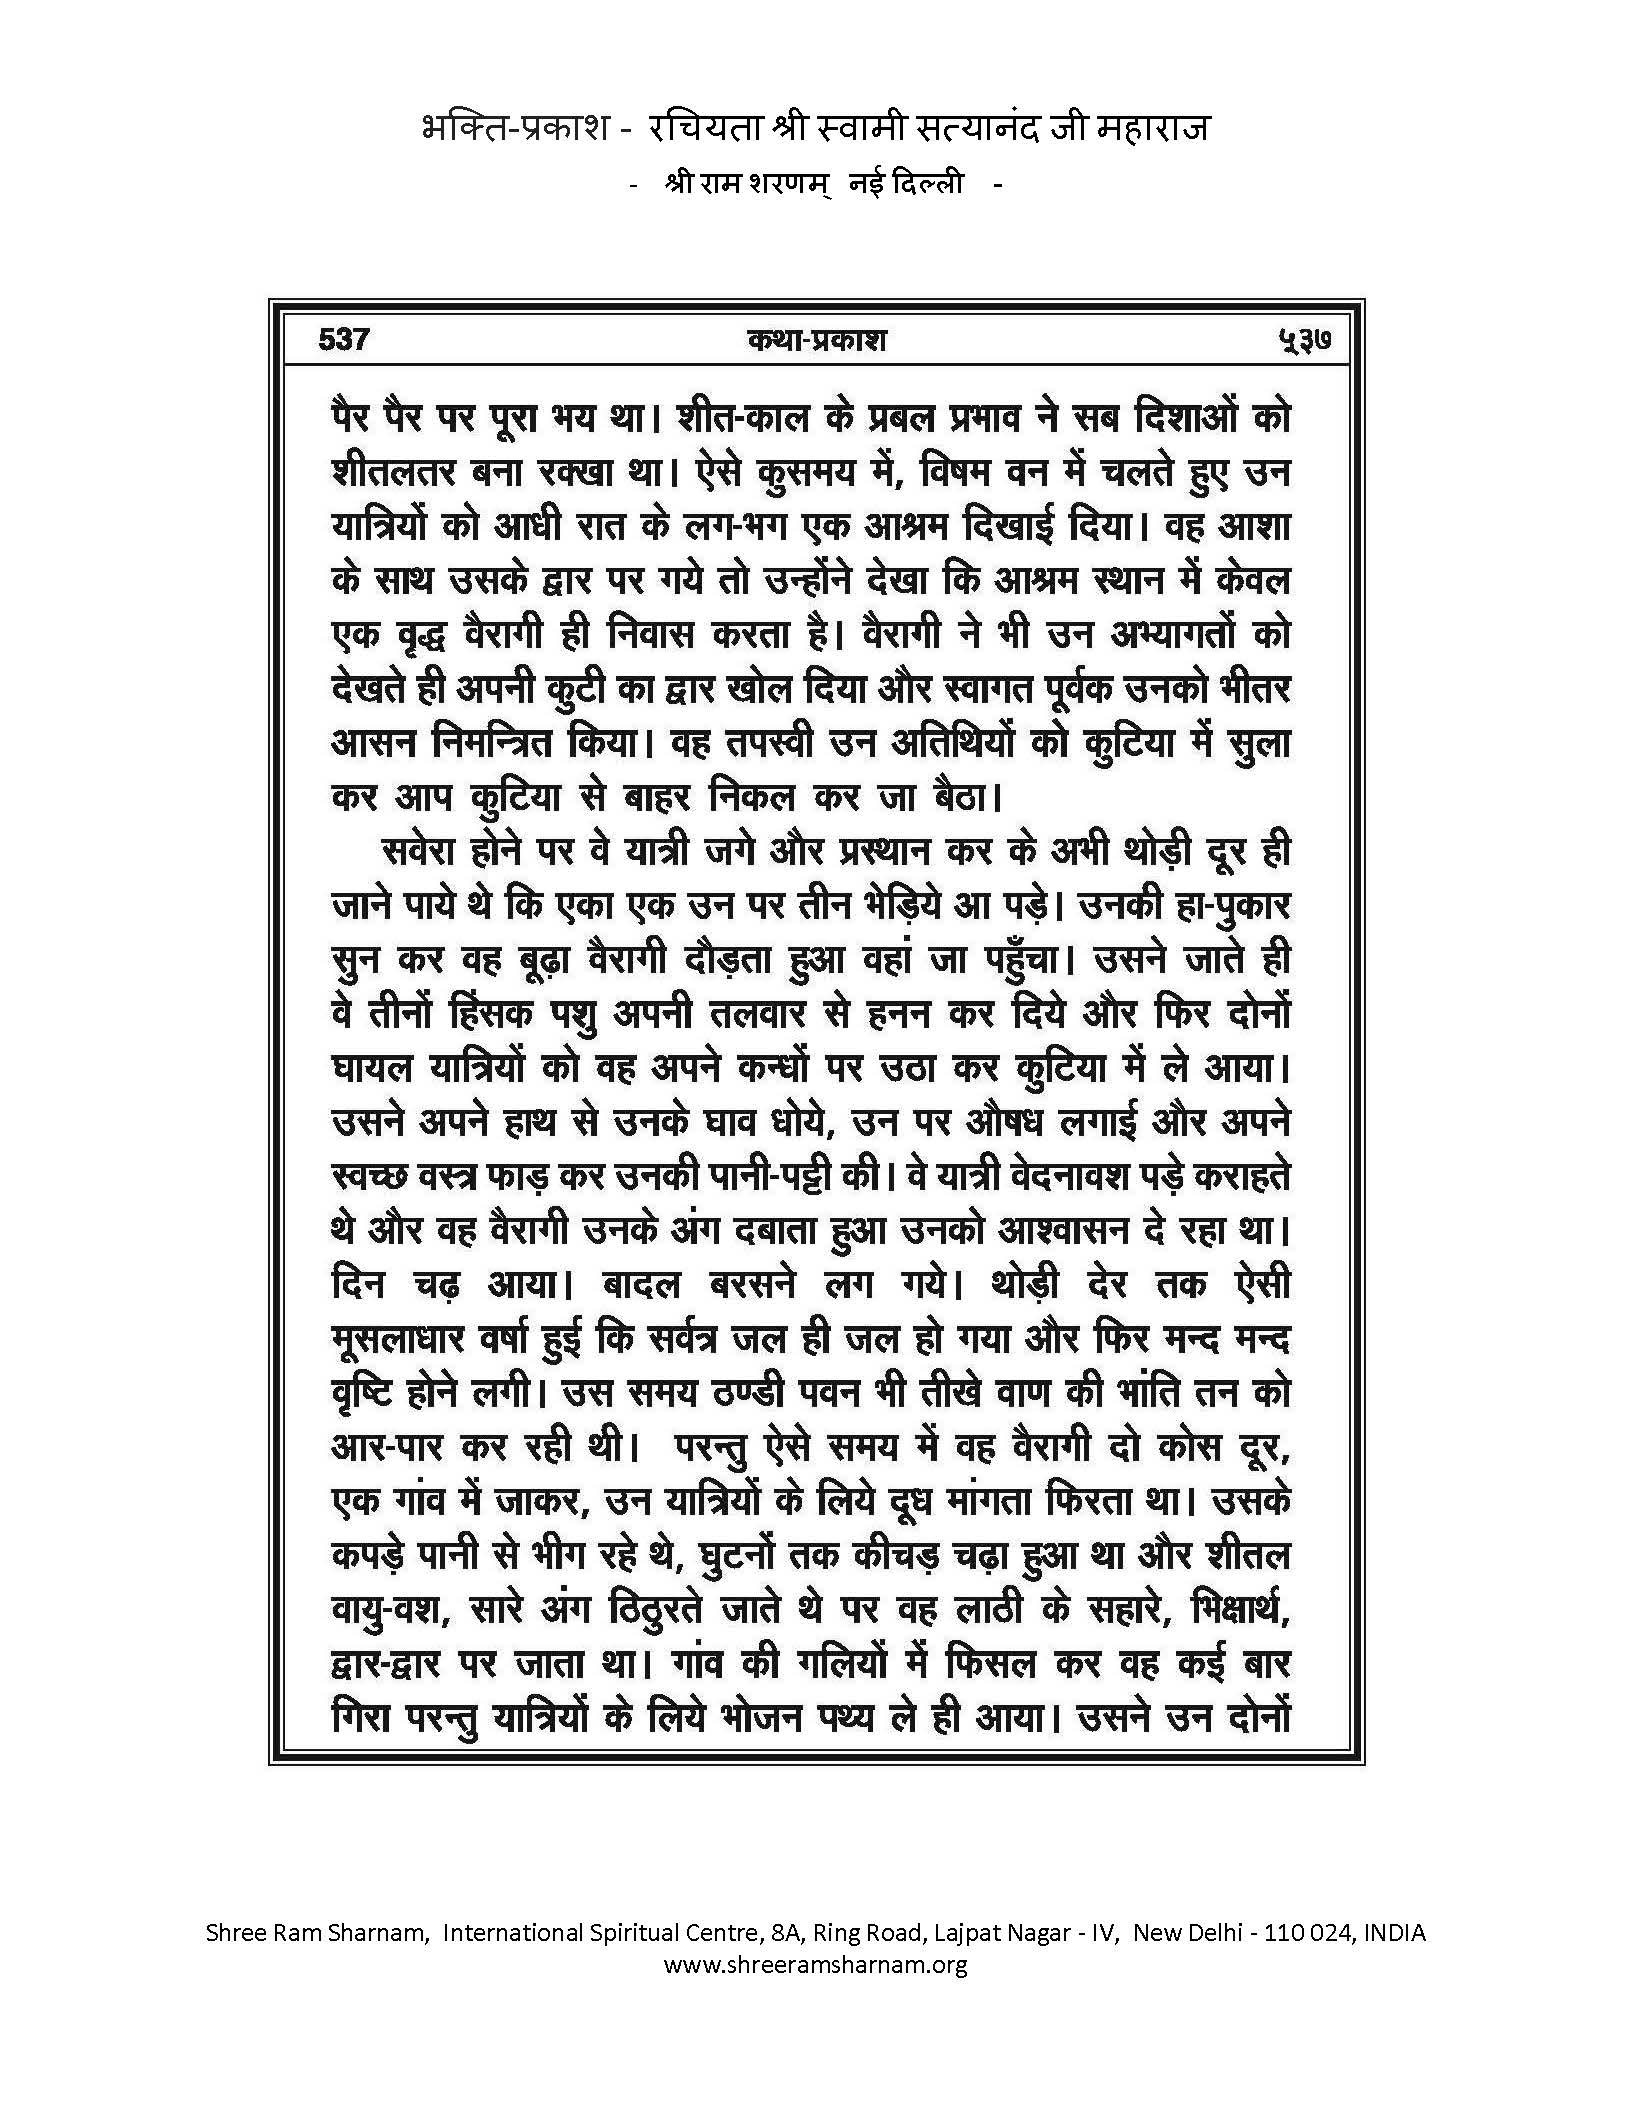 भक्ति-प्रकाश - रचियता श्री स्वामी सत्यानंद जी महाराज
- श्री राम शरणम् नई दिल्ली -
537 कथा-प्रकाश ५३७
पैर पैर पर पूरा भय था। शीत-काल के प्रबल प्रभाव ने सब दिशाओं को
शीतलतर बना रक्खा था। ऐसे कुसमय में, विषम वन में चलते हुए उन
यात्रियों को आधी रात के लग-भग एक आश्रम दिखाई दिया। वह आशा
के साथ उसके द्वार पर गये तो उन्होंने देखा कि आश्रम स्थान में केवल
एक वृद्ध वैरागी ही निवास करता है। वैरागी ने भी उन अभ्यागतों को
देखते ही अपनी कुटी का द्वार खोल दिया और स्वागत पूर्वक उनको भीतर
आसन निमन्त्रित किया। वह तपस्वी उन अतिथियों को कुटिया में सुला
कर आप कुटिया से बाहर निकल कर जा बैठा।
सवेरा होने पर वे यात्री जगे और प्रस्थान कर के अभी थोड़ी दूर ही
जाने पाये थे कि एका एक उन पर तीन भेड़िये आ पड़े। उनकी हा-पुकार
सुन कर वह बूढ़ा वैरागी दौड़ता हुआ वहां जा पहुँचा। उसने जाते ही
वे तीनों हिंसक पशु अपनी तलवार से हनन कर दिये और फिर दोनों
घायल यात्रियों को वह अपने कन्धों पर उठा कर कुटिया में ले आया।
उसने अपने हाथ से उनके घाव धोये, उन पर औषध लगाई और अपने
स्वच्छ वस्त्र फाड़ कर उनकी पानी-पट्टी की। वे यात्री वेदनावश पड़े कराहते
थे और वह वैरागी उनके अंग दबाता हुआ उनको आश्वासन दे रहा था।
दिन चढ़ आया। बादल बरसने लग गये। थोड़ी देर तक ऐसी
मूसलाधार वर्षा हुई कि सर्वत्र जल ही जल हो गया और फिर मन्द मन्द
वृष्टि होने लगी। उस समय ठण्डी पवन भी तीखे वाण की भांति तन को
आर-पार कर रही थी। परन्तु ऐसे समय में वह वैरागी दो कोस दूर,
एक गांव में जाकर, उन यात्रियों के लिये दूध मांगता फिरता था। उसके
कपड़े पानी से भीग रहे थे, घुटनों तक कीचड़ चढ़ा हुआ था और शीतल
वायु-वश, सारे अंग ठिठुरते जाते थे पर वह लाठी के सहारे, भिक्षार्थ,
द्वार-द्वार पर जाता था। गांव की गलियों में फिसल कर वह कई बार
गिरा परन्तु यात्रियों के लिये भोजन पथ्य ले ही आया। उसने उन दोनों
Shree Ram Sharnam, International Spiritual Centre, 8A, Ring Road, Lajpat Nagar - IV, New Delhi - 110 024, INDIA
www.shreeramsharnam.org